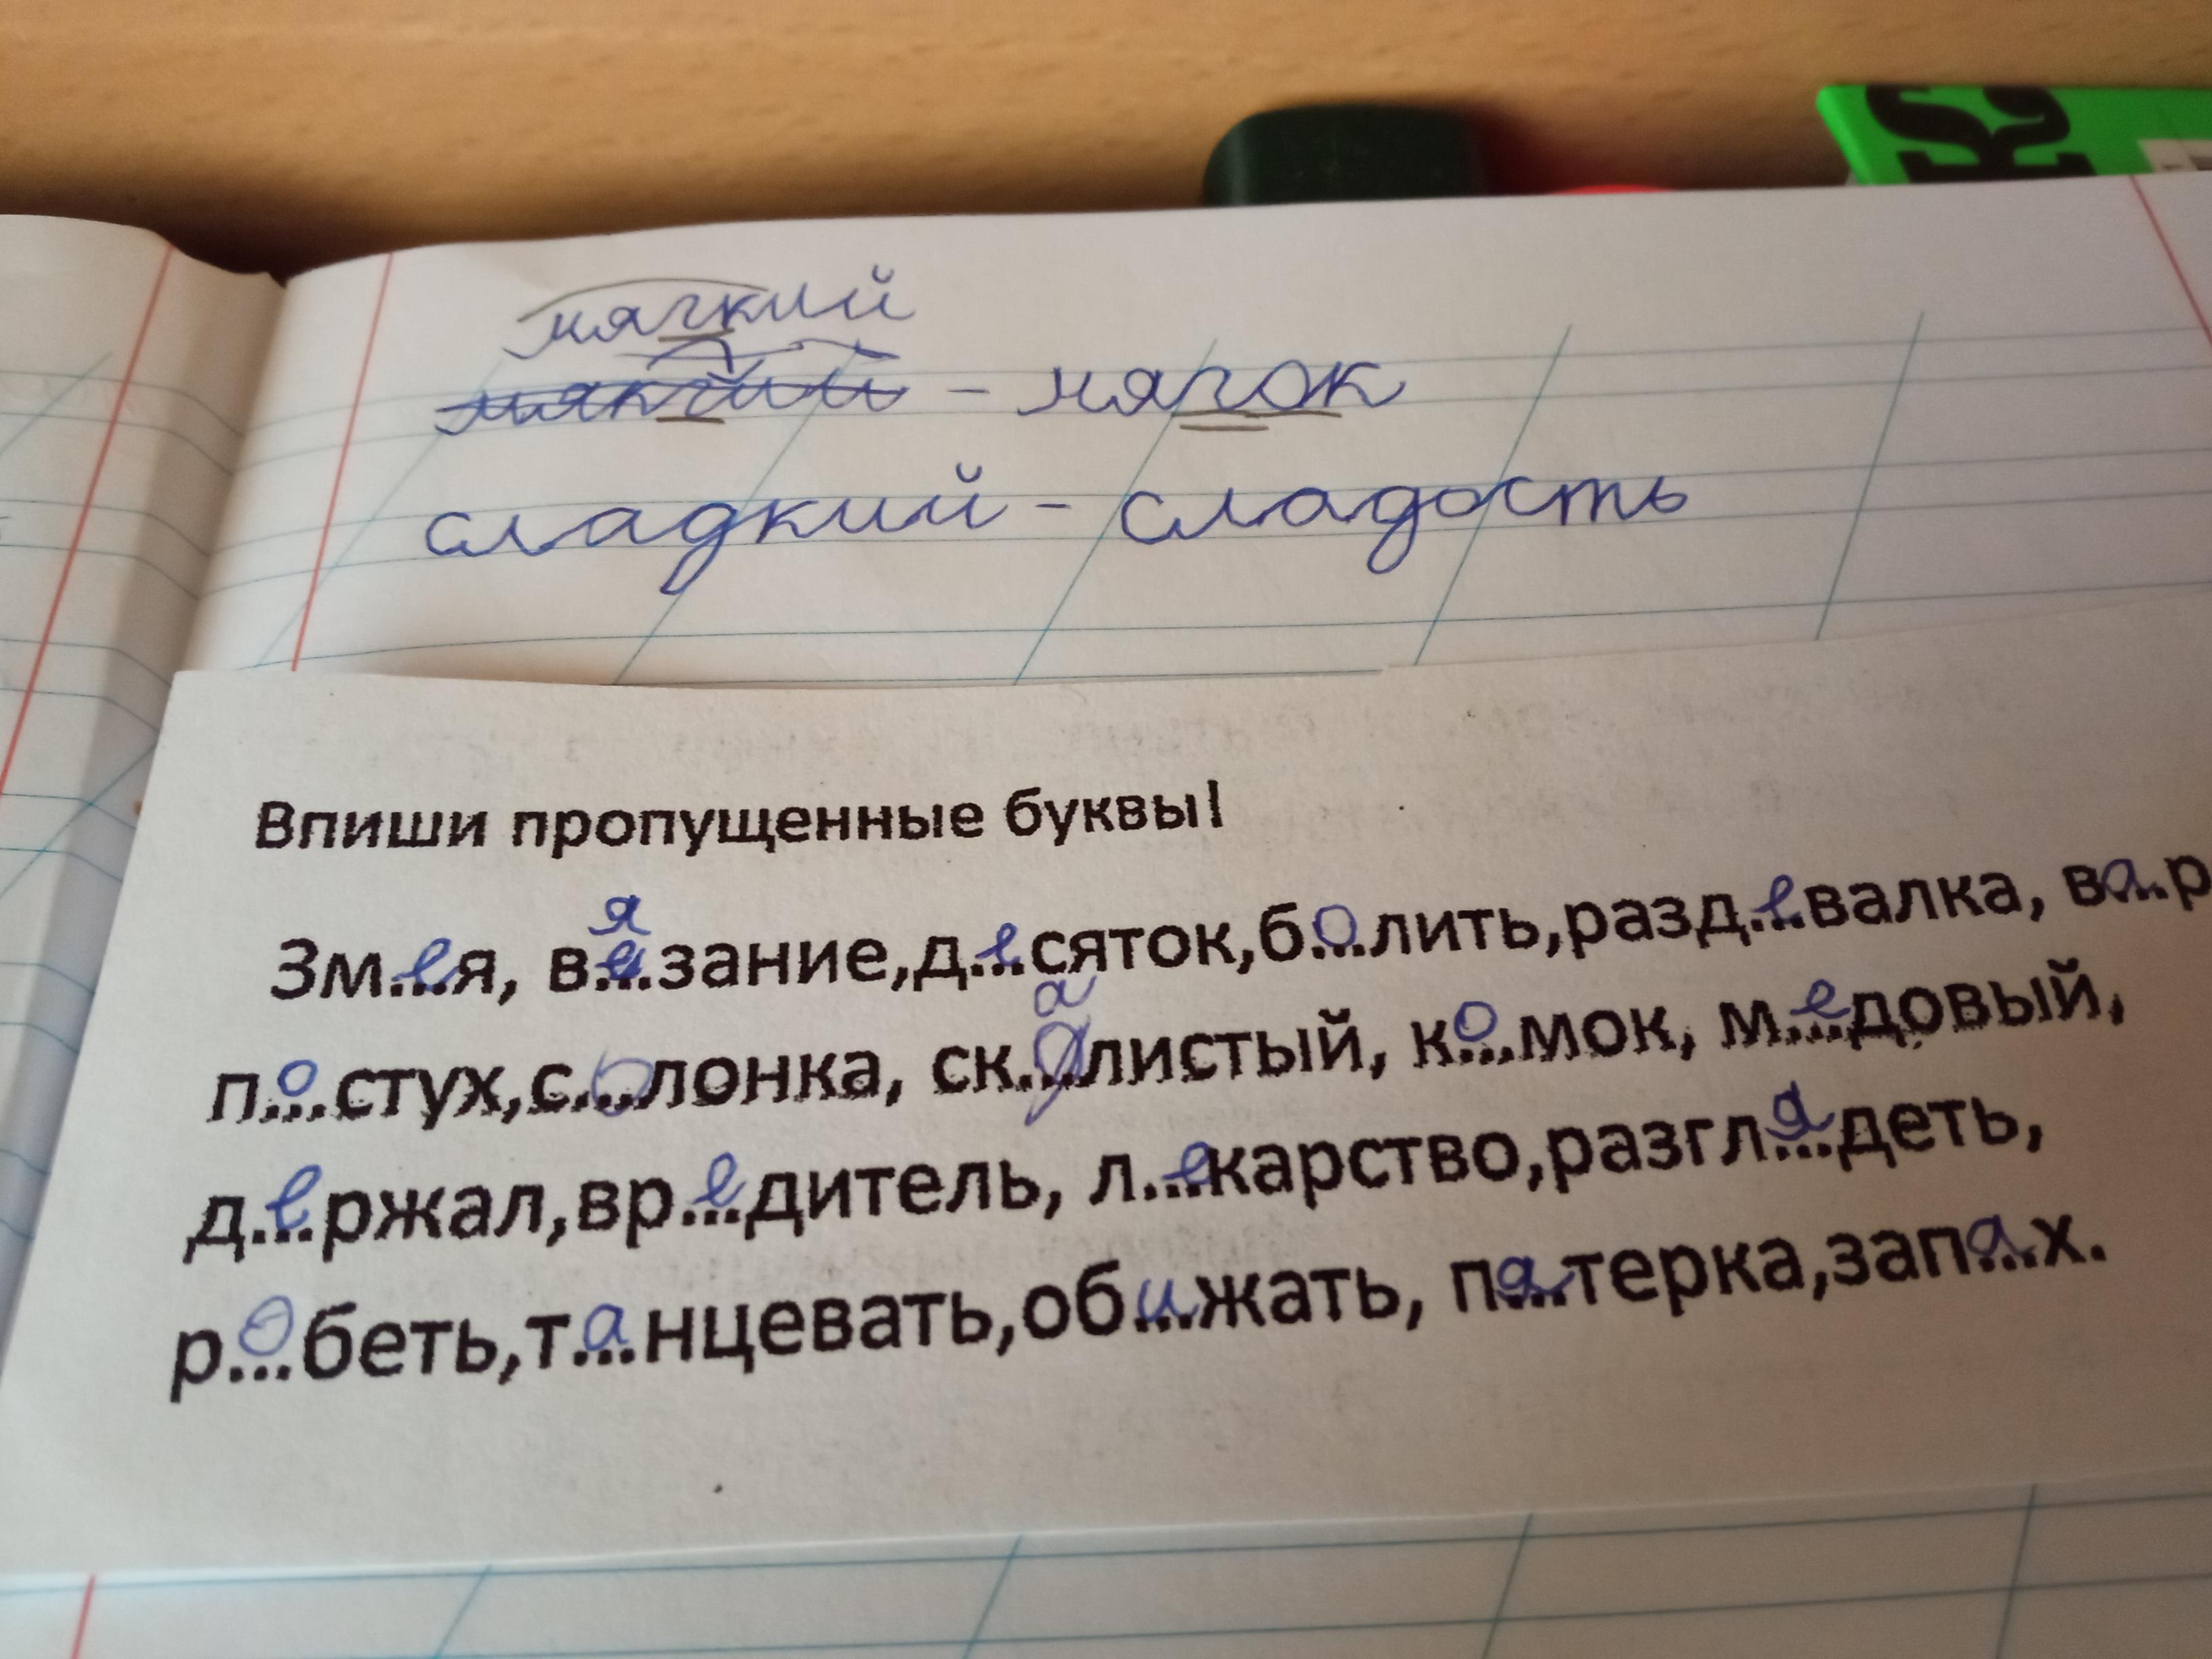 мягкий
– мягок
сладкий – сладость
Впиши пропущенные буквы!
Змея, вязание, десяток, болить, раздевалка, вар
постух, солонка, скалистый, комок, медовый,
держал, вредитель, лекарство, разглядеть,
робеть, танцевать, обижать, пятерка, запах.